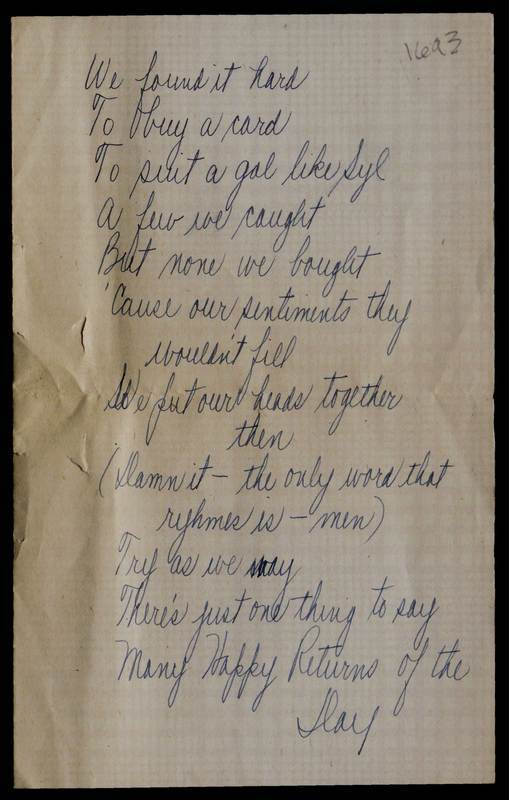 1693
We found it hard
To buy a card
To suit a gal like Syl
A few we caught
But none we bought
'Cause our sentiments they
wouldn't fill
We put our heads together
then
(Damn it - the only word that
ryhmes is - men)
Try as we may
There's just one thing to say
Many Happy Returns of the
Day